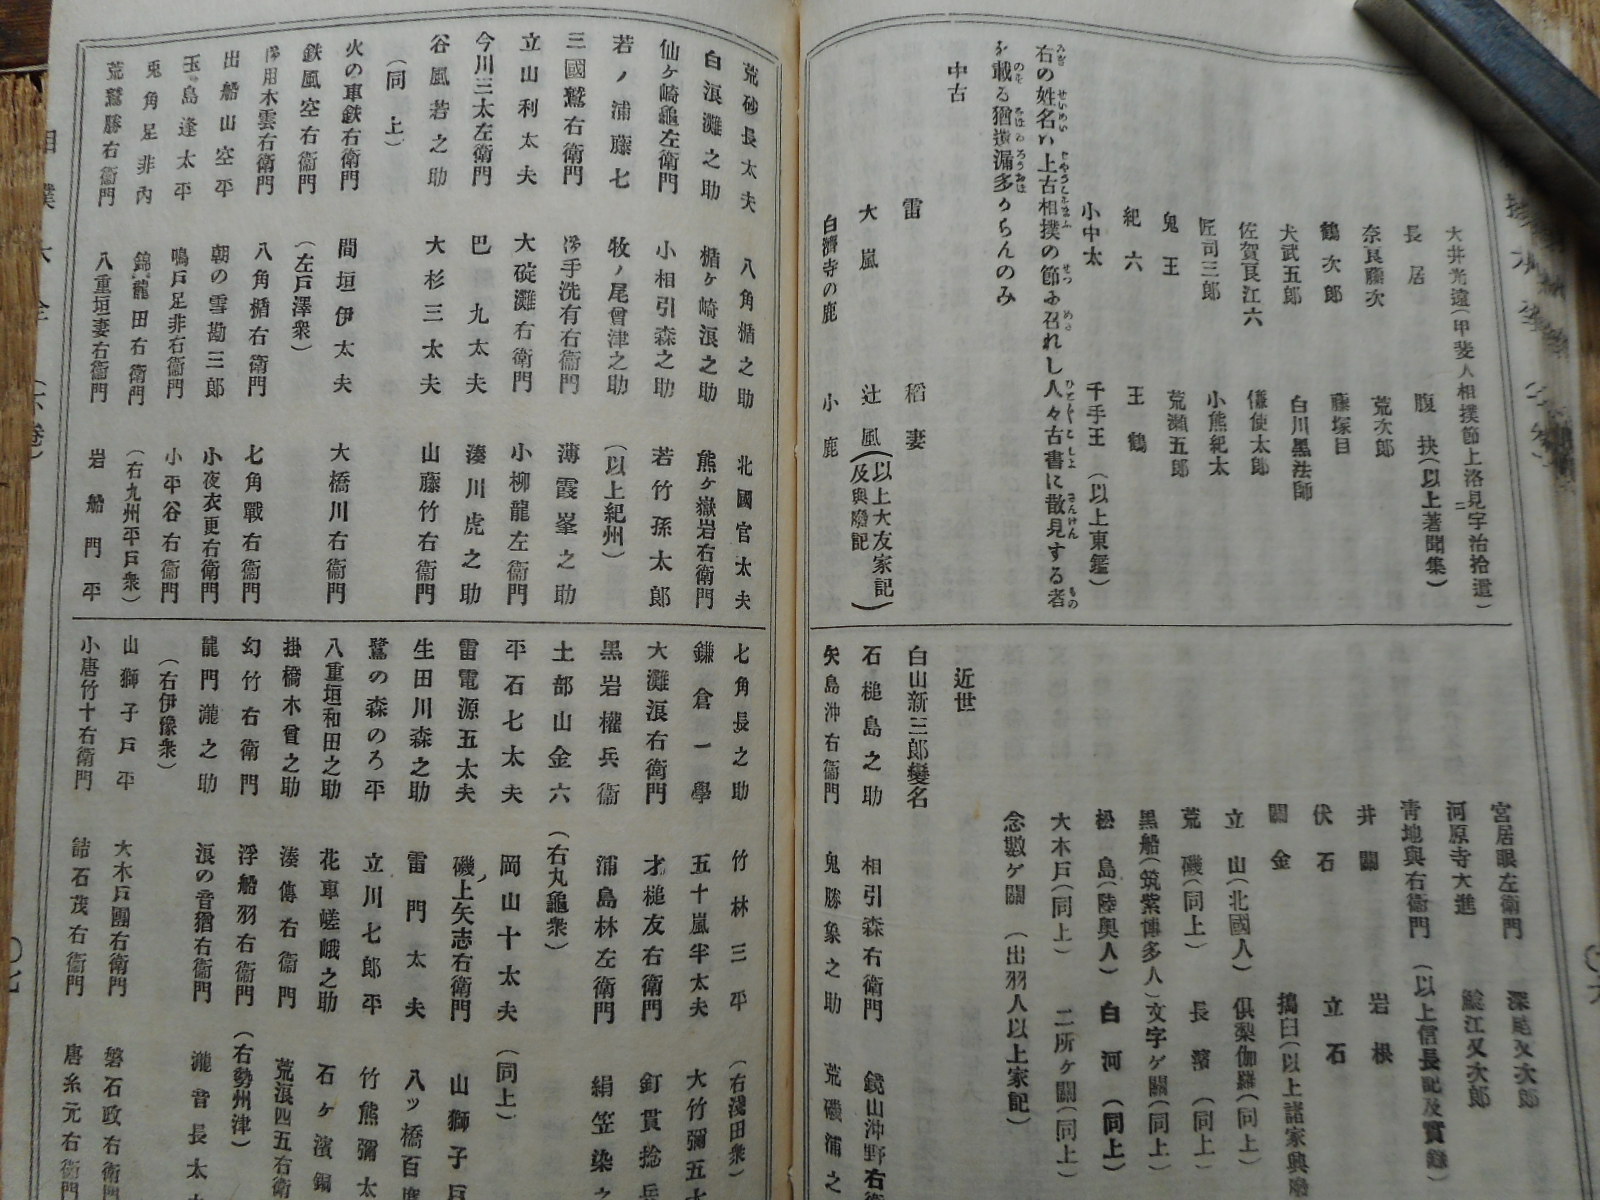 大井光遠(甲斐人相撲節上洛見宇治拾遺)
長居 腹抉(以上著聞集)
奈良藤次 荒次郎
鶴次郎 藤塚目
犬武五郎 白川黒法師
佐賀良江六 傔使太郎
匠司三郎 小熊紀太
鬼王 荒瀬五郎
紀六 王鶴
小中太 千手王 (以上東鑑)
右の姓名ハ上古相撲の節に召れし人々古書に散見する者
を載る猶遺漏多からんのみ
中古
雷 稲妻
大嵐 辻風(以上大友家記及與廢記)
白濟寺の鹿 小鹿
宮居眼左衛門 深尾又次郎
河原寺大進 鯰江又次郎
青地與右衛門 (以上信長記及實錄)
井關 岩根
伏石 立石
關金 搗臼(以上諸家興廢
立山(北國人) 倶梨伽羅(同上)
荒磯(同上) 長濱 (同上)
黒船(筑紫博多人) 文字ケ關(同上)
松島(陸奥人) 白河 (同上)
大木戸(同上) 二所ケ關(同上)
念數ケ關 (出羽人以上家記)
近世
白山新三郎變名
石槌島之助 相引森右衛門 鏡山沖野右衛
矢島沖右衛門 鬼勝象之助 荒磯浦之
荒砂長太夫 八角楯之助 北國官太夫
白浪灘之助 楯ケ崎浪之助 熊ケ嶽岩右衛門
仙ケ崎龜左衛門 小相引森之助 若竹孫太郎
若ノ浦藤七 牧ノ尾曾津之助 (以上紀州)
三國鷲右衛門 御手洗有右衛門 薄霞峯之助
立山利太夫 大碇灘右衛門 小柳龍左衛門
今川三太左衛門 巴九太夫 湊川虎之助
谷風若之助 大杉三太夫 山藤竹右衛門
(同上)
火の車鉄右衛門 間垣伊太夫 大橋川右衛門
鉄風空右衛門 (左戸澤衆)
御用木雲右衛門 八角楯右衛門 七角戰右衛門
出船山空平 朝の雪勘三郎 小夜衣更右衛門
玉島逢太平 鳴戸足非右衛門 小平谷右衛門
兎角足非内 錦龍田右衛門 (右九州平戸衆)
荒鷲勝右衛門 八重垣妻右衛門 岩船門平
七角長之助 竹林三平 (右淺田衆)
鎌倉一學 五十嵐半太夫 大竹彌五
大灘浪右衛門 才槌友右衛門 釘貫捻兵
黒岩權兵衞 浦島林左衛門 絹笠染之
土部山金六 (右丸龜衆)
平石七太夫 岡山十太夫 (同上)
雷電源五太夫 磯ノ上矢志右衛門 山獅子
生田川森之助 雷門太夫 八ッ橋百
鷺の森のろ平 立川七郎平 竹熊彌太
八重垣和田之助 花車嵯峨之助 石ケ濱
掛橋木曾之助 湊傳右衛門 荒浪四五右衛
幻竹右衛門 浮船羽右衛門 (右勢州津)
龍門瀧之助 浪の音猶右衛門 瀧音長太
(右伊豫衆)
山獅子戸平 大木戸團右衛門 磐石政右衛
小唐竹十右衛門 詰石茂右衛門 唐糸元右衛門
相撲大全 (六巻)
〇七